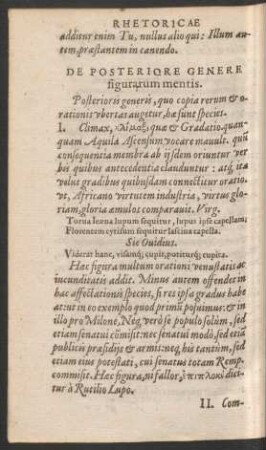 RHETORICAE
additur enim Tu, nullus alio qui: Illum au-
tem, præstantem in canendo.
DE POSTERIORE GENERE
figurarum mentis.
Posterioris generis, quo copia rerum & o-
rationis vbertas augetur, hæ sunt species.
I. Climax, κλίμαξ, quæ & Gradatio. quan-
quam Aquila Ascensum vocare mauult. quũ
consequentia membra ab ijsdem oriuntur ver
bis quibus antecedentia clauduntur: atq; ita
velut gradibus quibusdam connectitur oratio.
vt, Africano virtutem industria, virtus glo-
riam, gloria æmulos comparauit. Virg.
Torua leæna lupum sequitur, lupus ipse capellam:
Florentem cytisum sequitur lasciua capella.
Sic Ouidius.
Viderat hanc, visamq; cupit, potiturq; cupita.
Hac figura multum orationi venustatis ac
iucunditatis addit. Minus autem offendet in
hac affectationis species, si res ipsa gradus habe
at: vt in eo exemplo quod primũ posuimus: & in
illo pro Milone, Neq; vero se populo solùm, sed
etiam senatui cõmisit: nec senatui modò, sed etiã
publicis præsidijs & armis: neq; his tantùm, sed
etiam eius potestati, cui senatus totam Remp.
commisit. Hæc figura, ni fallor, ἐπιπλοκὴ dici-
tur à Rutilio Lupo.
II. Com-